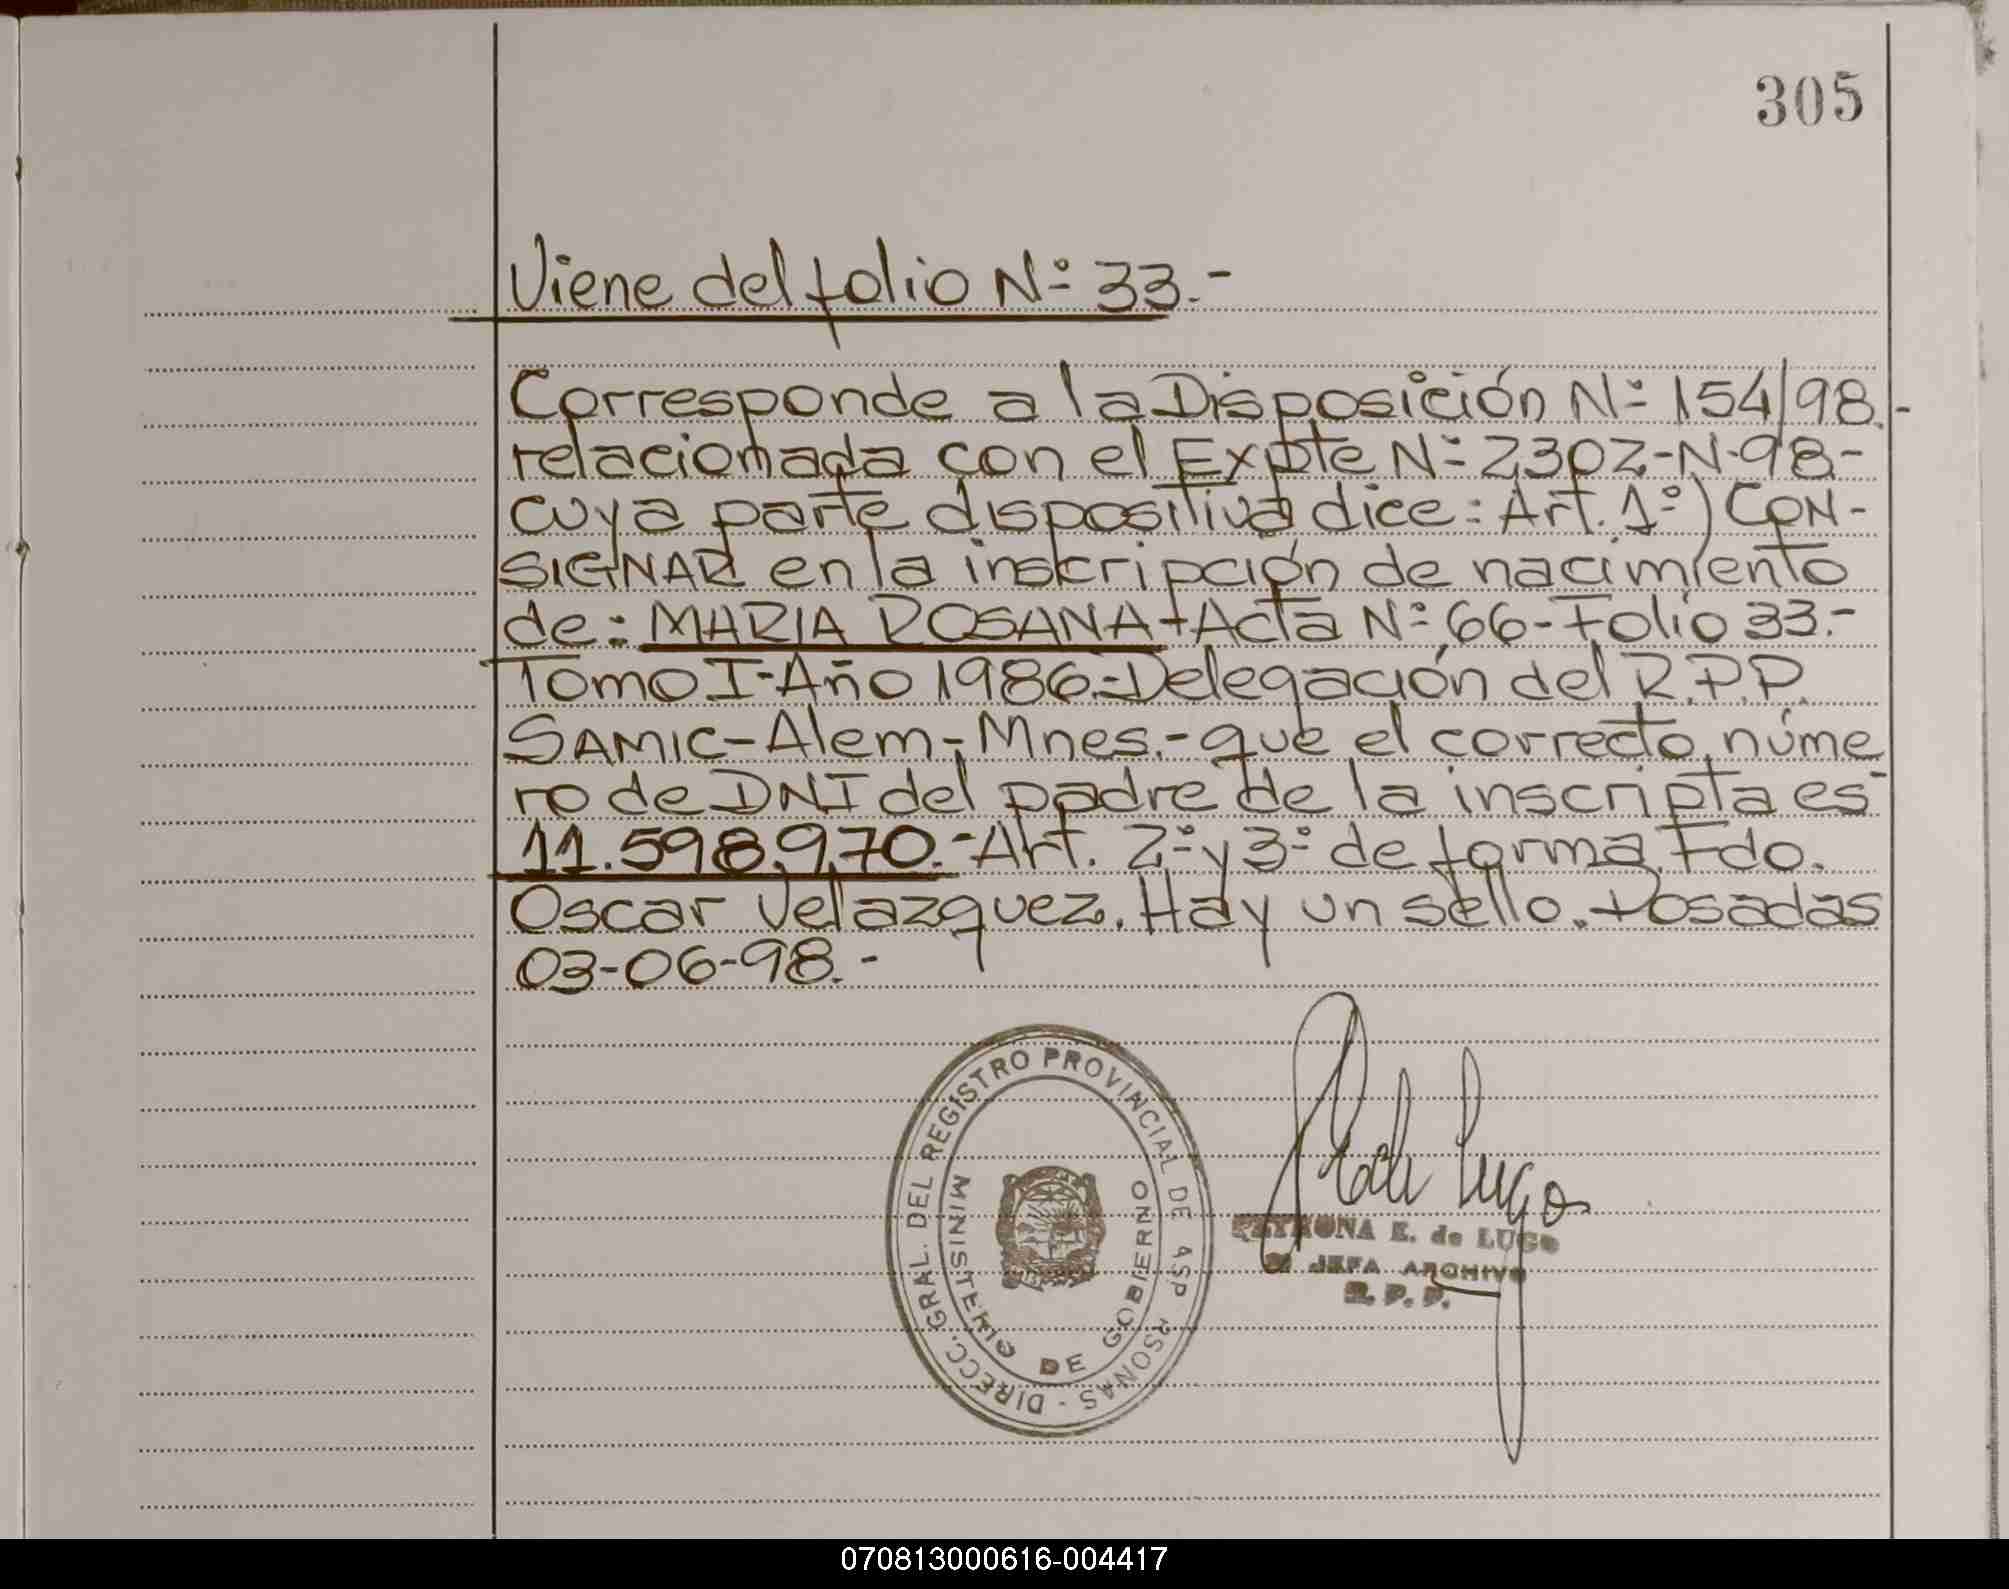 305
Viene del folio Nº 33.-
Corresponde a la Disposición Nº 154/98.-
relacionada con el Expte Nº 2302-N-98-
cuya parte dispositiva dice: Art. 1º) CON-
SIGNAR en la inscripción de nacimiento
de: MARIA ROSANA-Acta Nº 66-Folio 33.-
Tomo I-Año 1986.-Delegación del R.P.P.
SAMIC-Alem-Mnes.-que el correcto núme
ro de DNI del padre de la inscripta es
11.598.970.-Art. 2º y 3º de forma. Fdo.
Oscar Velazquez. Hay un sello. Posadas
03-06-98.-
DIRECC. GRAL. DEL REGISTRO PROVINCIAL DE RSONAS -
MINISTERIO DE GOBIERNO
E. de LUGO
JEFA ARCHIVO
R.P.P.
070813000616-004417